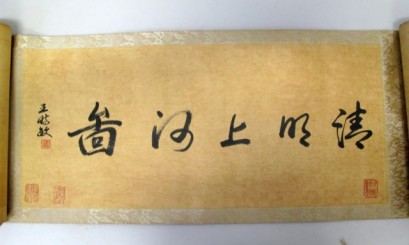 清明上河啚
王時敏